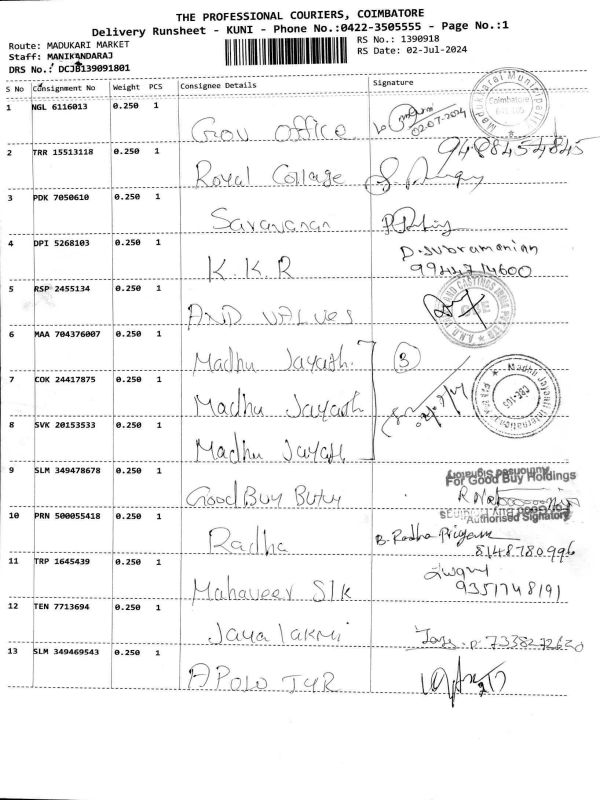 THE PROFESSIONAL COURIERS, COIMBATORE
Delivery Runsheet - KUNI - Phone No.:0422-3505555 - Page No.:1
Route: MADUKARI MARKET
RS No.: 1390918
Staff: MANIKANDARAJ
RS Date: 02-Jul-2024
DRS No.: DCJB139091801
S No Consignment No Weight PCS Consignee Details Signature
1 NGL 6116013 0.250 1 Gov office 02-07-2024
Coimbatore
2 TRR 15513118 0.250 1 Royal Collage 9488454845
3 PDK 7050610 0.250 1 Saravanan
4 DPI 5268103 0.250 1 K.K.R D.Subramanian
9944714600
5 RSP 2455134 0.250 1 AND VALVES
6 MAA 704376007 0.250 1 Madhu Jayath. 3
7 COK 24417875 0.250 1 Madhu Jayath
Madhu Jayanti International
CBE-105
8 SVK 20153533 0.250 1 Madhu Jayath
9 SLM 349478678 0.250 1 Good Buy
For Good Buy Holdings
Authorised Signatory
10 PRN 500055418 0.250 1 Radha B. Radha Priyaa
8148780996
11 TRP 1645439 0.250 1 Mahaveer Slk
9351748191
12 TEN 7713694 0.250 1 Jaya lakmi
13 SLM 349469543 0.250 1 APOLO TYR